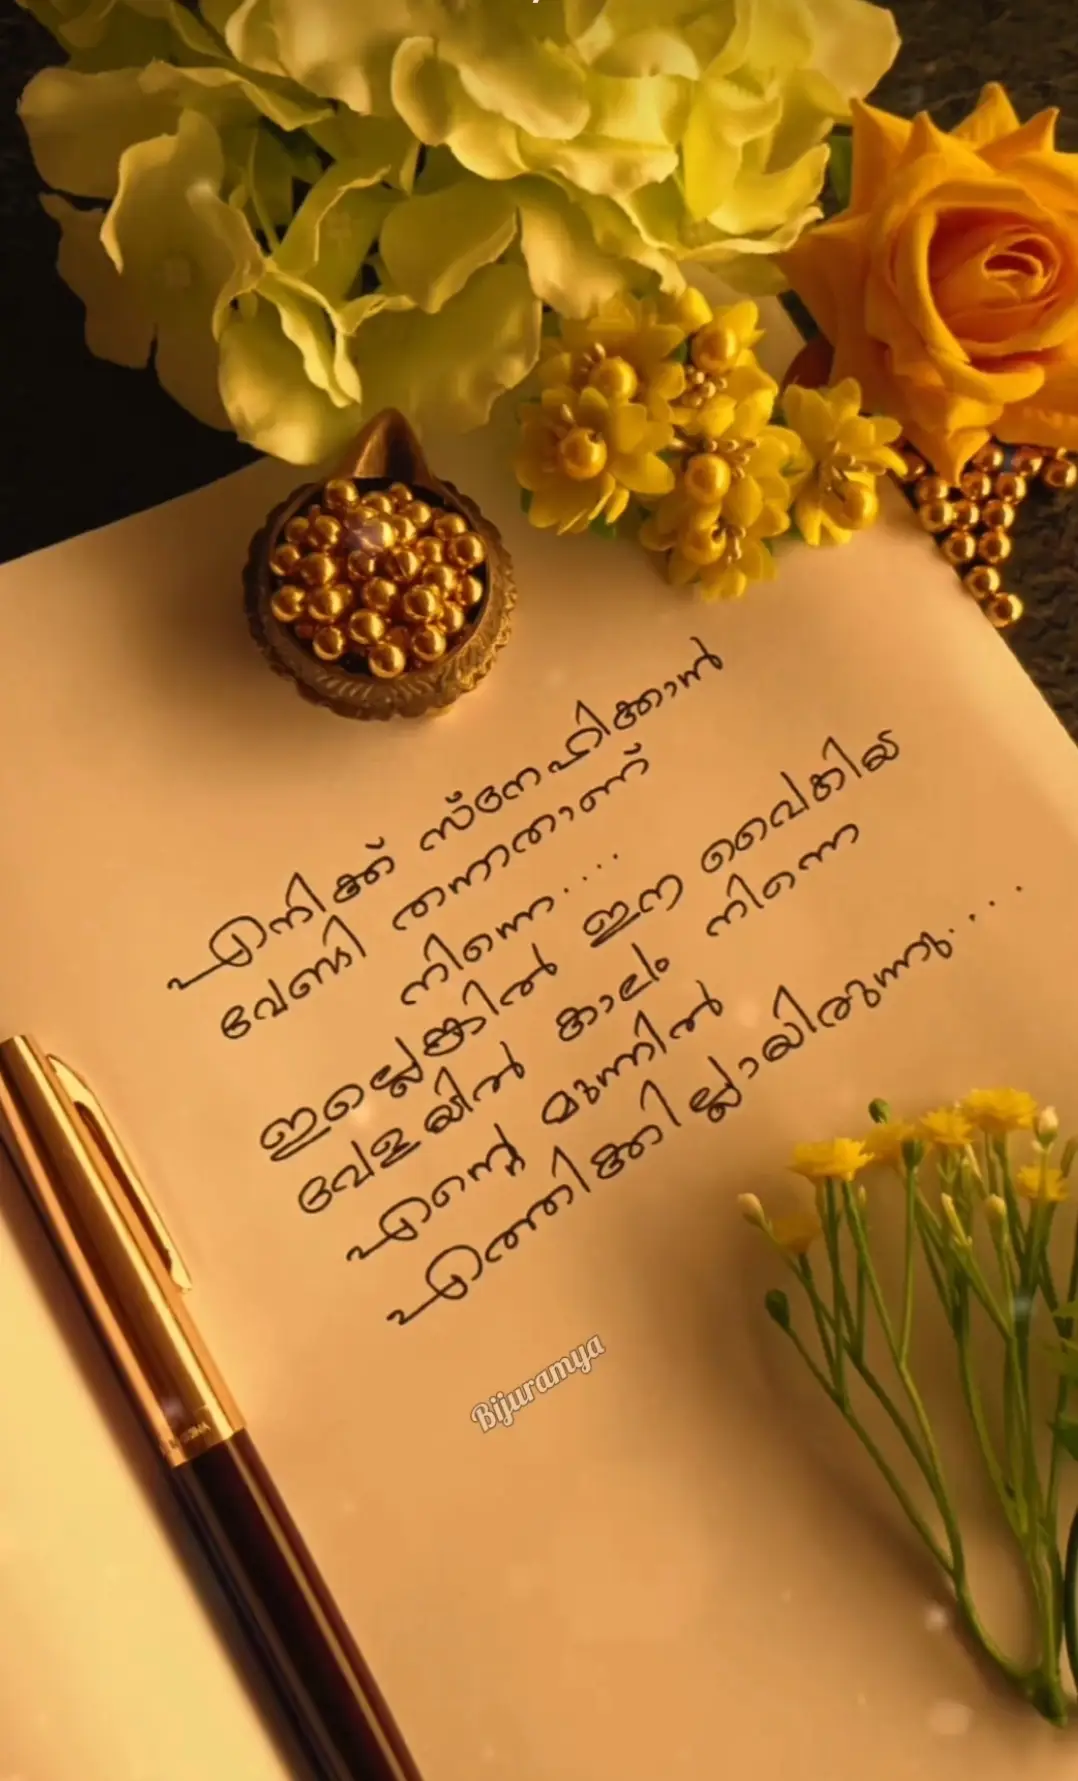 എനിക്ക് സ്നേഹിക്കാൻ
വേണ്ടി തന്നതാണ്
നിന്നെ....
ഇല്ലെങ്കിൽ ഈ വൈകിയ
വേളയിൽ കാലം നിന്നെ
എന്റെ മുന്നിൽ
എത്തിക്കില്ലായിരുന്നു....
Bijuramya